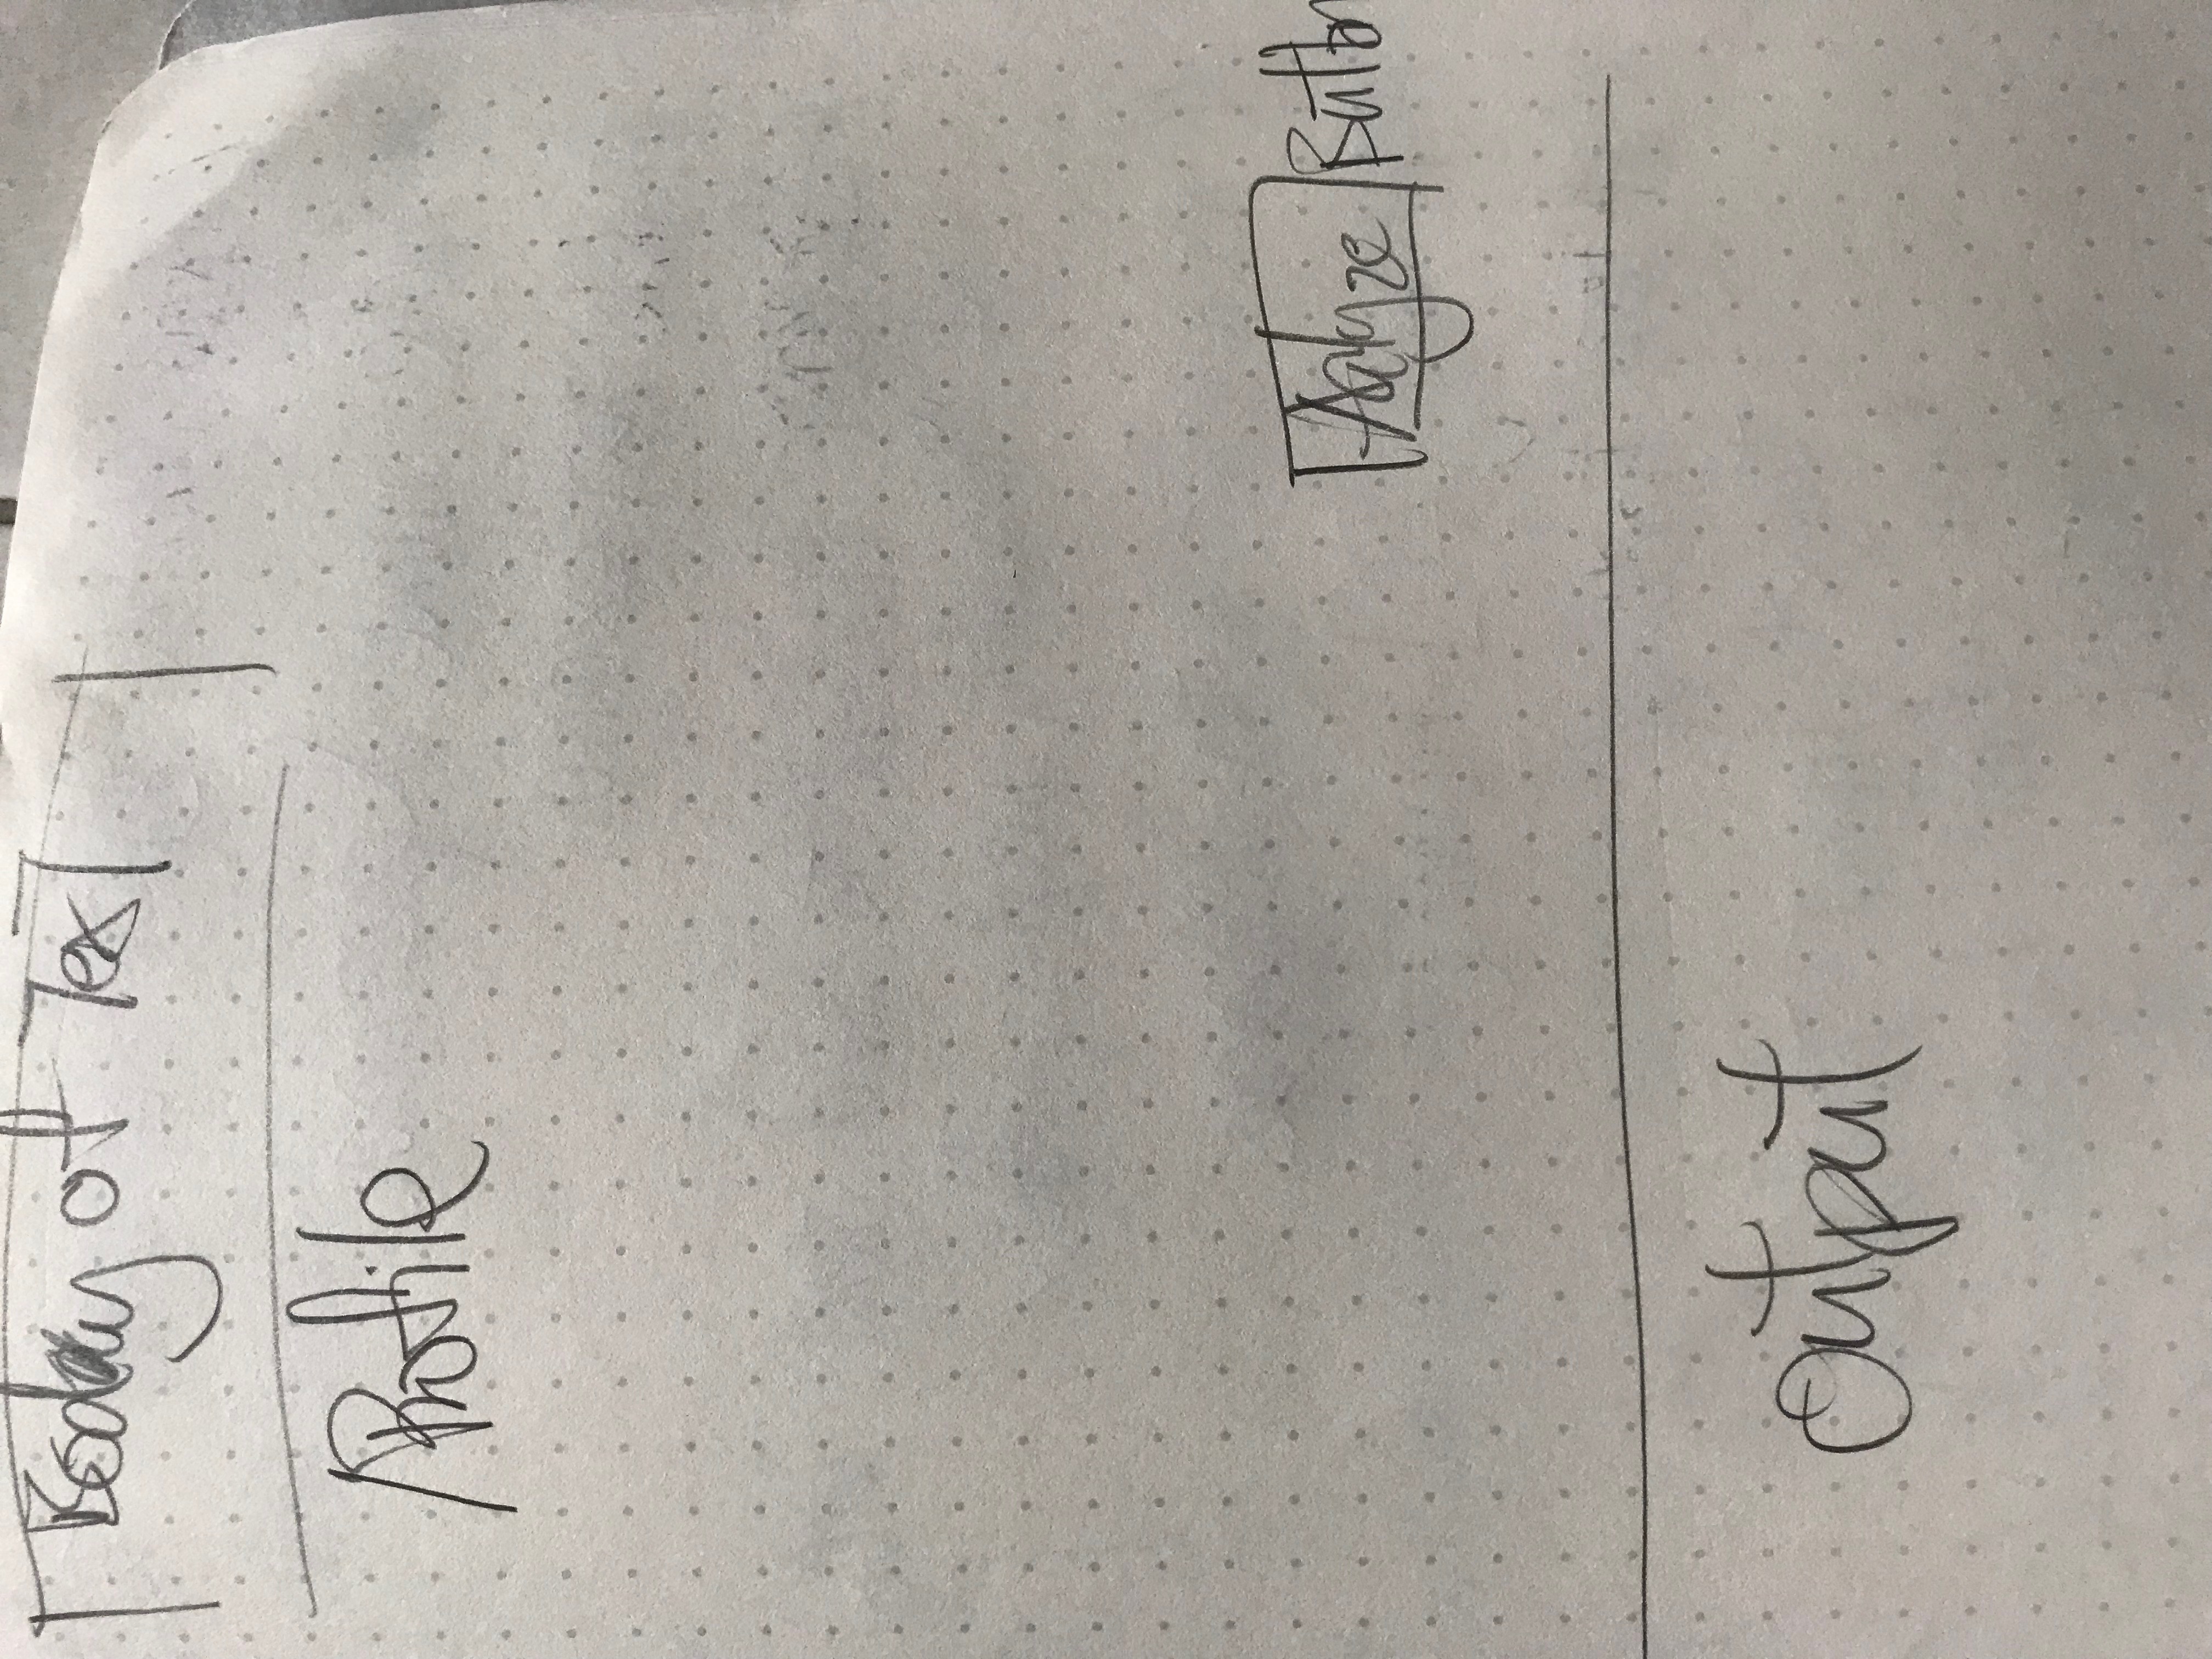 Body of Text
Profile
Analyze Button
Output